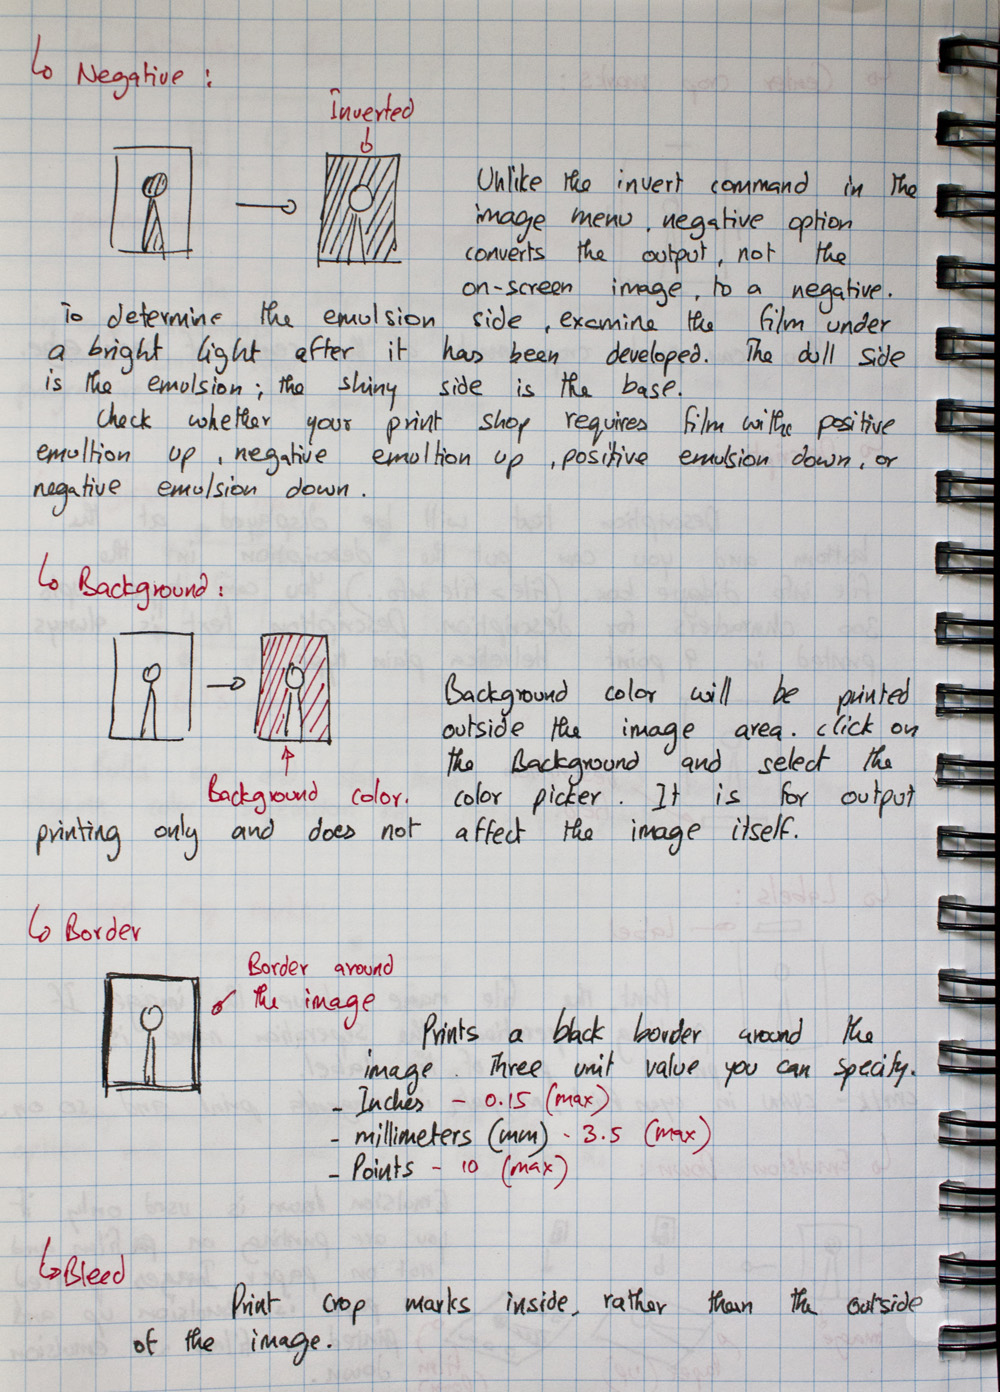 ↳ Negative :
Inverted
Unlike the invert command in the
image menu, negative option
converts the output, not the
on-screen image, to a negative.
To determine the emulsion side, examine the film under
a bright light after it has been developed. The dull side
is the emulsion; the shiny side is the base.
Check whether your print shop requires film with positive
emultion up, negative emultion up, positive emulsion down, or
negative emulsion down.
↳ Background :
Background color will be printed
outside the image area. click on
the Background and select the
Background color.
color picker. It is for output
printing only and does not affect the image itself.
↳ Border
Border around
the image
Prints a black border around the
image. Three unit value you can specify.
- Inches - 0.15 (max)
- millimeters (mm) - 3.5 (max)
- Points - 10 (max)
↳ Bleed
Print crop marks inside, rather than the outside
of the image.